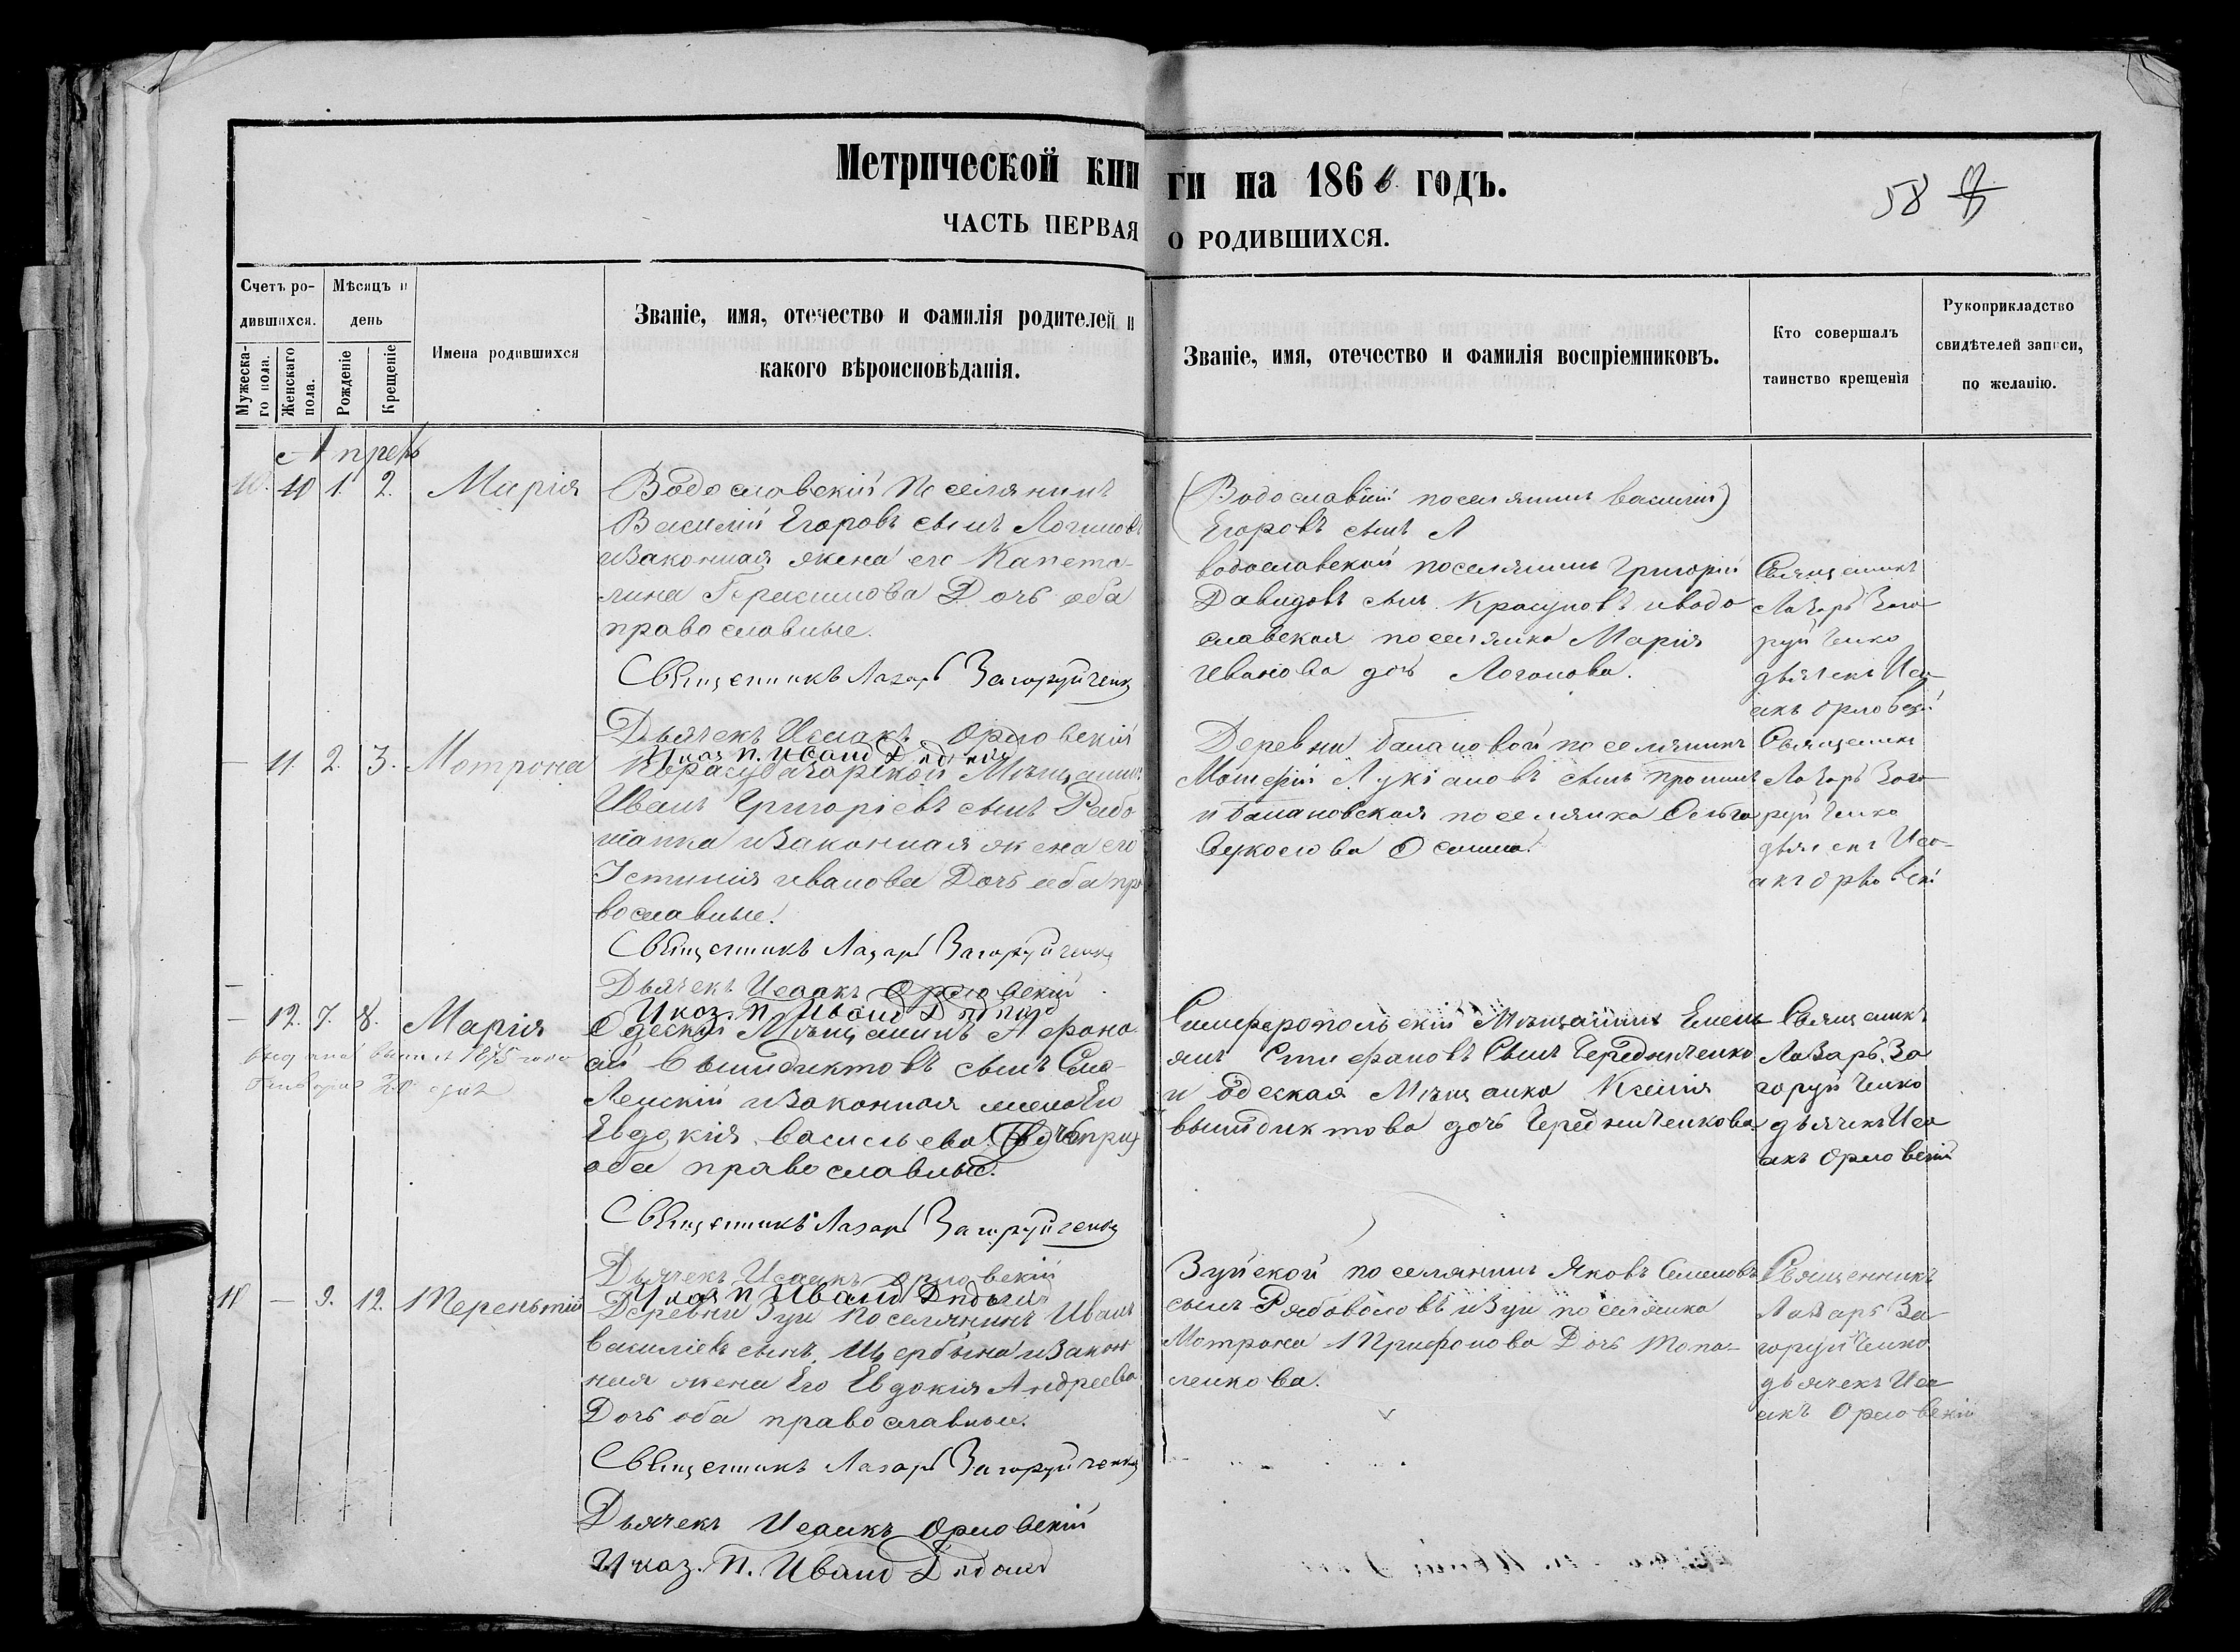 Метрической кни ги на 1866 годъ.
58
ЧАСТЬ ПЕРВАЯ О РОДИВШИХСЯ.
Счетъ ро-
дившихся.
Мужеска-
го пола.
Женскаго
пола.
Мѣсяцъ и
день
Рожденіе
Крещеніе
Имена родившихся
Званіе, имя, отечество и фамилія родителей и
какого вѣроисповѣданія.
Званіе, имя, отечество и фамилія воспріемниковъ.
Кто совершалъ
таинство крещенія
Рукоприкладство
свидѣтелей записи,
по желанію.
Апрель
10. 10 1. 2. Марія
Водославскій Поселянинъ
Василий Егоровъ сынъ Логиновъ
изаконная жена его Капето-
лина Герасимова Дочь оба
православные.
Священникъ Лазарь Загоруйченко
Дьячекъ Исаакъ Орловскій
Указ. п. Иванъ
(Водославкій поселянинъ василій)
Егоровъ сынъ Л
водославской поселянинъ Григорій
Давидовъ сынъ Красуновъ иводо
славская поселянка Марія
Иванова дочь Логонова.
Священникъ
Лазарь Заго-
руй Ченко
дьячекъ Иса-
акъ Орловскій
— 11. 2. 3. Мотрона
Карасубазарской Мѣщанинъ
Иванъ Григоріевъ сынъ Рябо
шапка изаконная жена его
Істинія иванова Дочь оба пра
вославные.
Священникъ Лазарь Загоруйченко
Дьячекъ Исаакъ Орловскій
Указ. п. Иванъ
Деревни бапановой поселянинъ
Мотерій Лукіановъ сынъ пронинъ
и бапановская поселянка Ольга
Вукослова Осипина.
Священник
Лазарь Заго-
руй Ченко
дьячекъ Иса-
акъ орловскі
— 12. 7. 8. Марія
1875 года
Одескій Мѣщанинъ Афана
сій Венидиктовъ сынъ Смо-
Ленскій изаконная жена Его
Евдокія васильева Дочь
оба православные.
Священникъ Лазарь Загоруйченко
Дьячекъ Исаакъ Орловскій
Указ. п. Иванъ
Симферопольскій Мѣщанинъ Емель
янъ Стифановъ Сынъ Чередниченко
и Одеская Мѣщанка Ксенія
винидиктова дочь Чередниченкова
Священикъ
Лазарь За
горуй Ченко
дьячекъ Иса
акъ Орловскій
11 — 9. 12. Терентій
Деревни Зуи Поселянинъ Иванъ
Василіевъ сынъ Щербына изакон
ная жена Его Евдокія Андреева
Дочь оба православные.
Священникъ Лазарь Загоруйченко
Дьячекъ Исаакъ Орловскій
Указ. п. Иванъ
Зуйской поселянинъ Яковъ Семеновъ
сынъ Рябоволовъ изуи поселянка
Мотрона Трифонова Дочь Топо-
ленкова.
Священникъ
Лазарь За-
горуй Ченко
дьячекъ Иса
акъ Орловскій